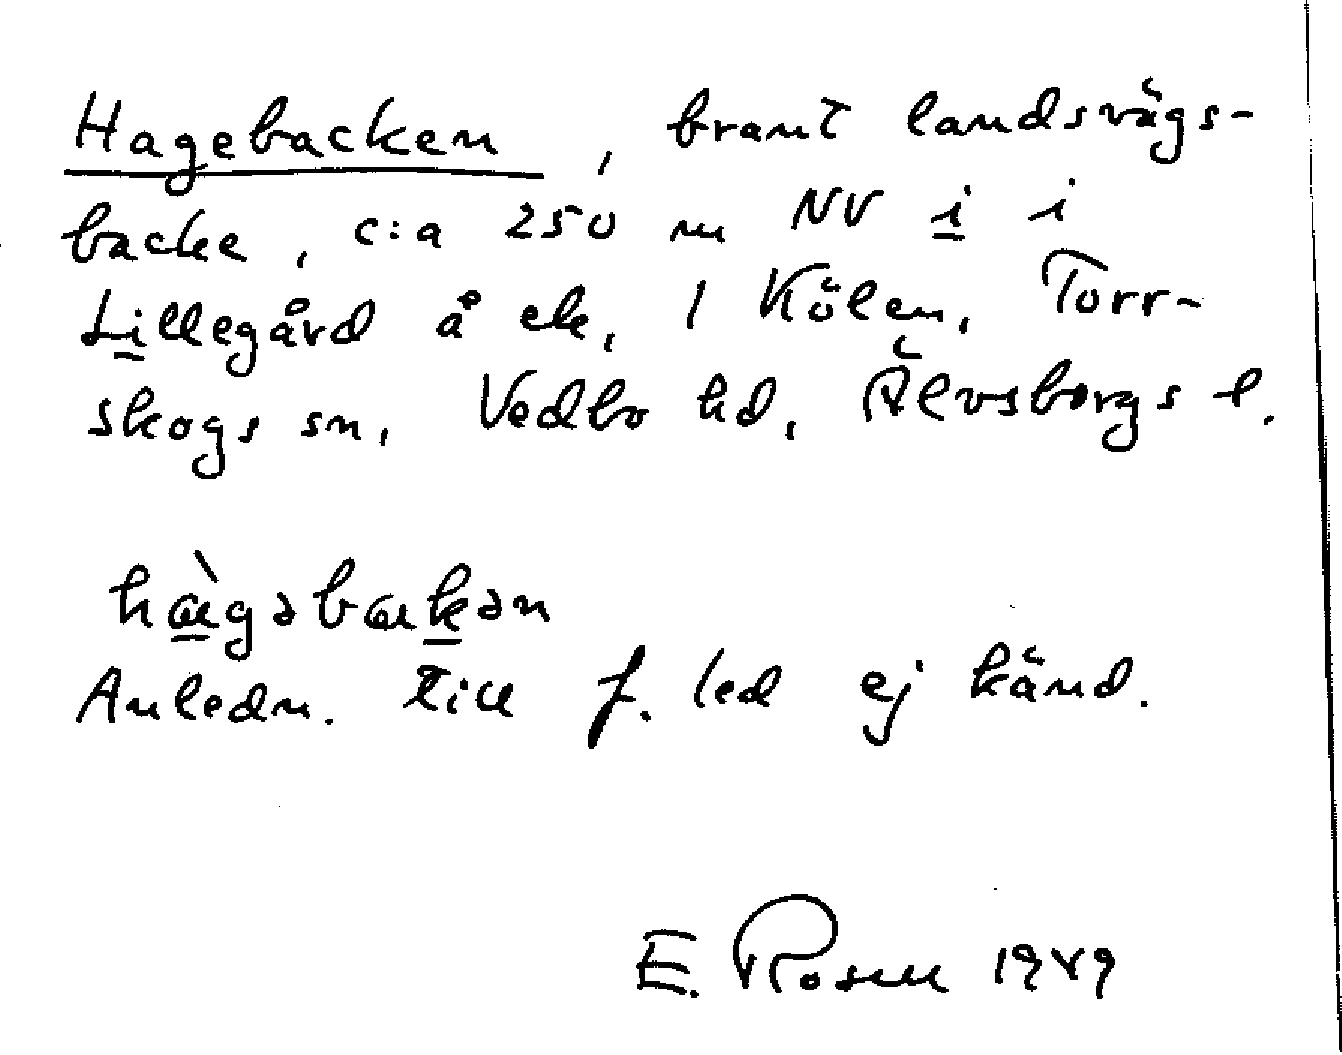 Hagebacken, brant landsvägs-
backe, c:a 250 m NV i i
Lillegård å ek, 1 Kölen, Torr-
skogs sn, Vedbo hd, Älvsborgs l.
hàgəbakən
Anledn. till f. led ej känd.
E. Rosell 1949